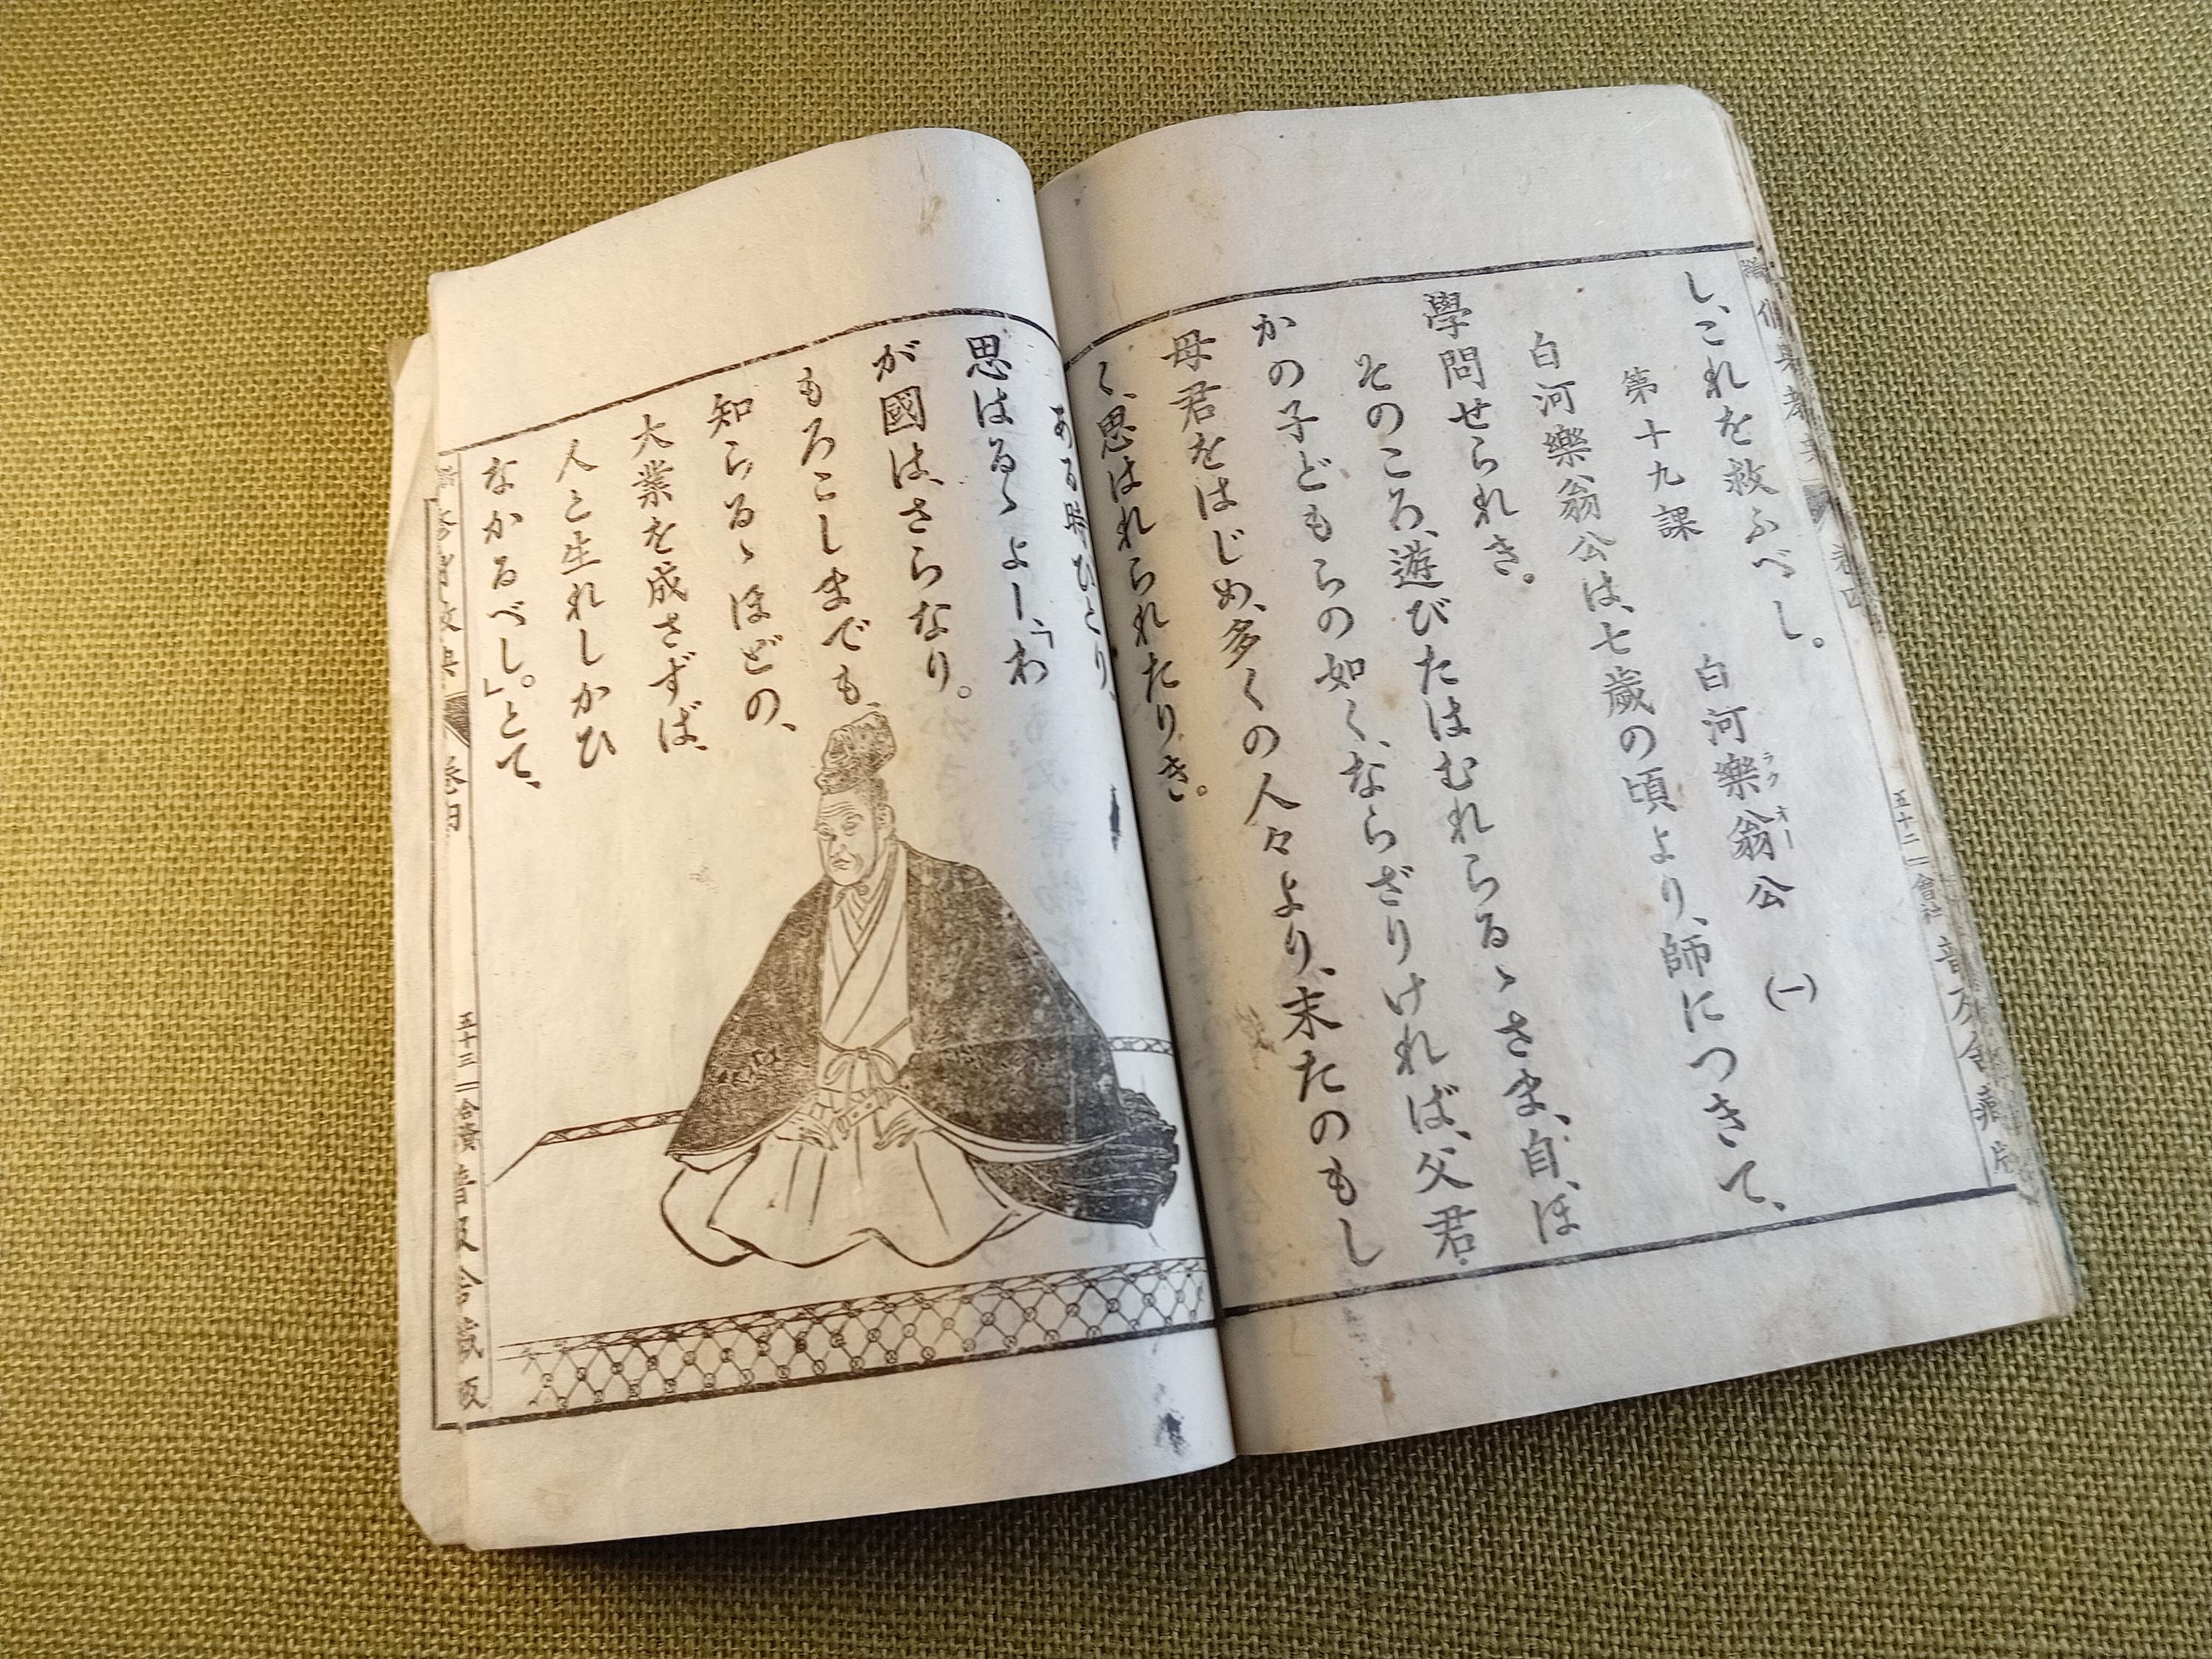 し、これを救ふべし。
第十九課 白河樂翁公 (一)
ラクオー
白河樂翁公は、七歲の頃より、師につきて、
學問せられき。
そのころ、遊びたはむれらるゝさま、自、ほ
かの子どもらの如く、ならざりければ、父君、
母君をはじめ、多くの人々より、末たのもし
く、思はれられたりき。
ある時、ひとり、
思はるゝよー、「わ
が國は、さらなり。
もろこしまでも、
知らるゝほどの、
大業を成さずば、
人と生れしかひ
なかるべし。」とて、
卷四
五十三